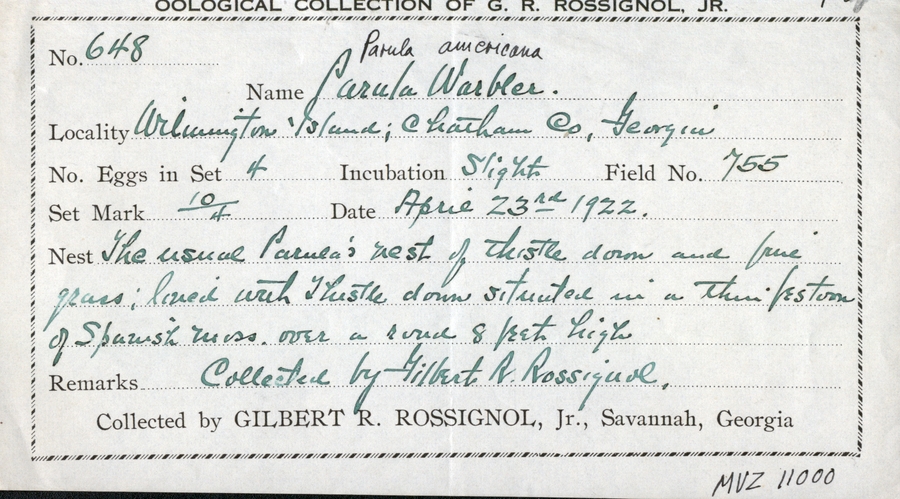 OOLOGICAL COLLECTION OF G. R. ROSSIGNOL, JR.
No. 648
Parula americana
Name Parula Warbler.
Locality Wilmington Island; Chatham Co, Georgia
No. Eggs in Set 4 Incubation Slight Field No. 755
Set Mark 10/4 Date April 23rd 1922.
Nest The usual Parula's nest of thistle down and fine
grass; lined with Thistle down situated in a thin festoon
of Spanish moss. over a road 8 feet high
Remarks Collected by Gilbert R. Rossignol,
Collected by GILBERT R. ROSSIGNOL, Jr., Savannah, Georgia
MVZ 11000